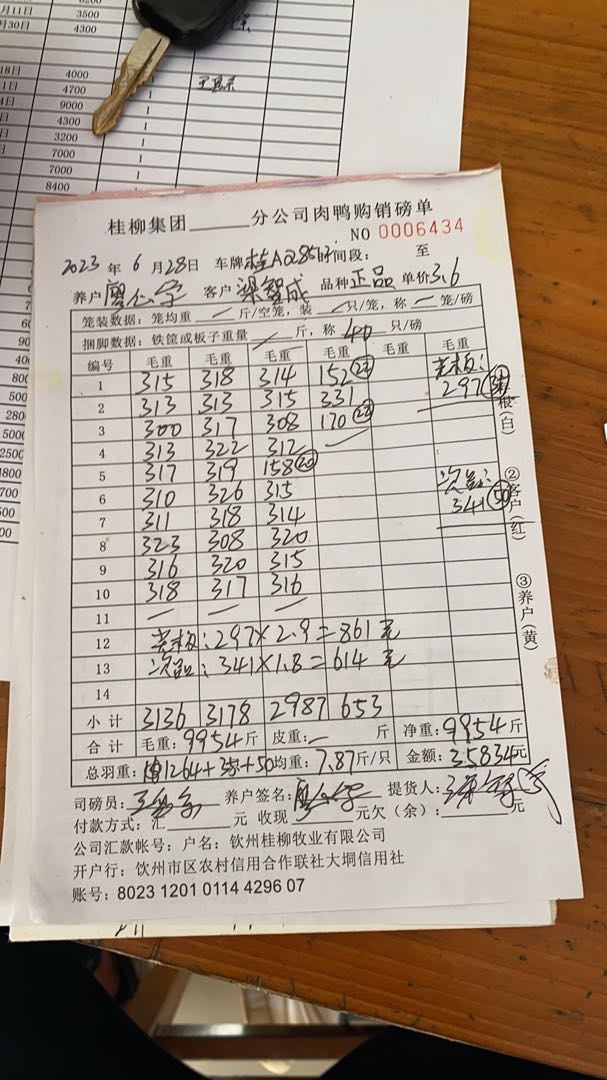 月11日 3500
月30日 4300
18日 4000 1
4700 1
9000 1
4300 1
3200 1
7000 1
7000 1
8400 1
桂柳集团______分公司肉鸭购销磅单
NO 0006434
2023 年 6 月 28 日 车牌 桂A 时间段: 至
养户 廖 客户 梁智成 品种 正品 单价 3.6
笼装数据: 笼均重 — 斤/空笼, 装 — 只/笼, 称 — 笼/磅
捆脚数据: 铁筐或板子重量 斤, 称 40 只/磅
编号 毛重 毛重 毛重 毛重 毛重 毛重
1 315 318 314 152
2 313 313 315 331 297
3 300 317 308 170
4 313 322 312
5 317 319 158 20 次品:
6 310 326 315 341 50
7 311 318 314
8 323 308 320
9 316 320 315
10 318 317 316
11 — — —
12 :297×2.9=861元
13 次品:341×1.8=614元
14
小计 3136 3178 2987 653
合计 毛重: 9954 斤 皮重: — 斤 净重: 9954 斤
总羽重: 1264+ +50 均重: 7.87 斤/只 金额: 35834 元
司磅员: 养户签名: 廖 提货人:
付款方式: 汇______元 收现______元欠(余):______元
公司汇款帐号: 户名: 钦州桂柳牧业有限公司
开户行: 钦州市区农村信用合作联社大垌信用社
账号: 8023 1201 0114 4296 07
根(白)
②客户(红)
③养户(黄)